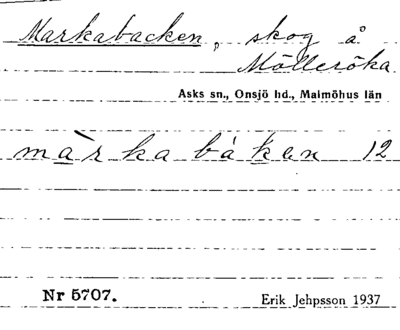 Markabacken, skog å
Mölleröka
Asks sn., Onsjö hd., Malmöhus län
màrkabákan 12
Nr 5707.
Erik Jehpsson 1937